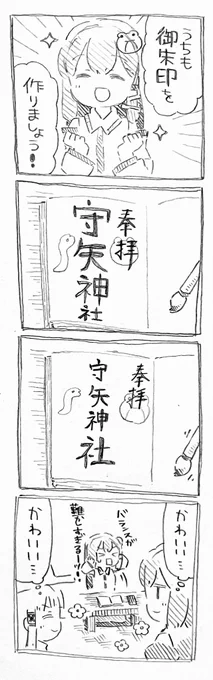 うちも
御朱印を
作りましょう!
奉拝
守矢神社
奉拝
守矢神社
バランスが
難しすぎるーッ!!
かわいい…
かわいい…